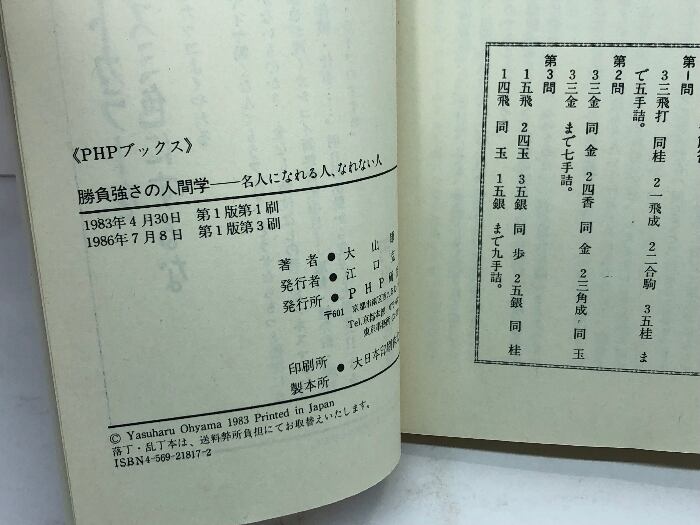 《PHPブックス》
勝負強さの人間学――名人になれる人、なれない人
1983年4月30日 第1版第1刷
1986年7月8日 第1版第3刷
著者●大山
発行者●江口
発行所●PHP
〒601 京都市南区
Tel.京都
東京事
印刷所
製本所
●大日本印刷株
© Yasuharu Ohyama 1983 Printed in Japan
落丁・乱丁本は、送料弊所負担にてお取替えいたします。
ISBN4-569-21817-2
第1問
3三飛打 同桂 2一飛成 2二合駒 3五桂 ま
で五手詰。
第2問
3三金 同金 2四香 同金 2三角成 同玉
3三金 まで七手詰。
第3問
1五飛 2四玉 3五銀 同歩 2五銀 同桂
1四飛 同玉 1五銀 まで九手詰。